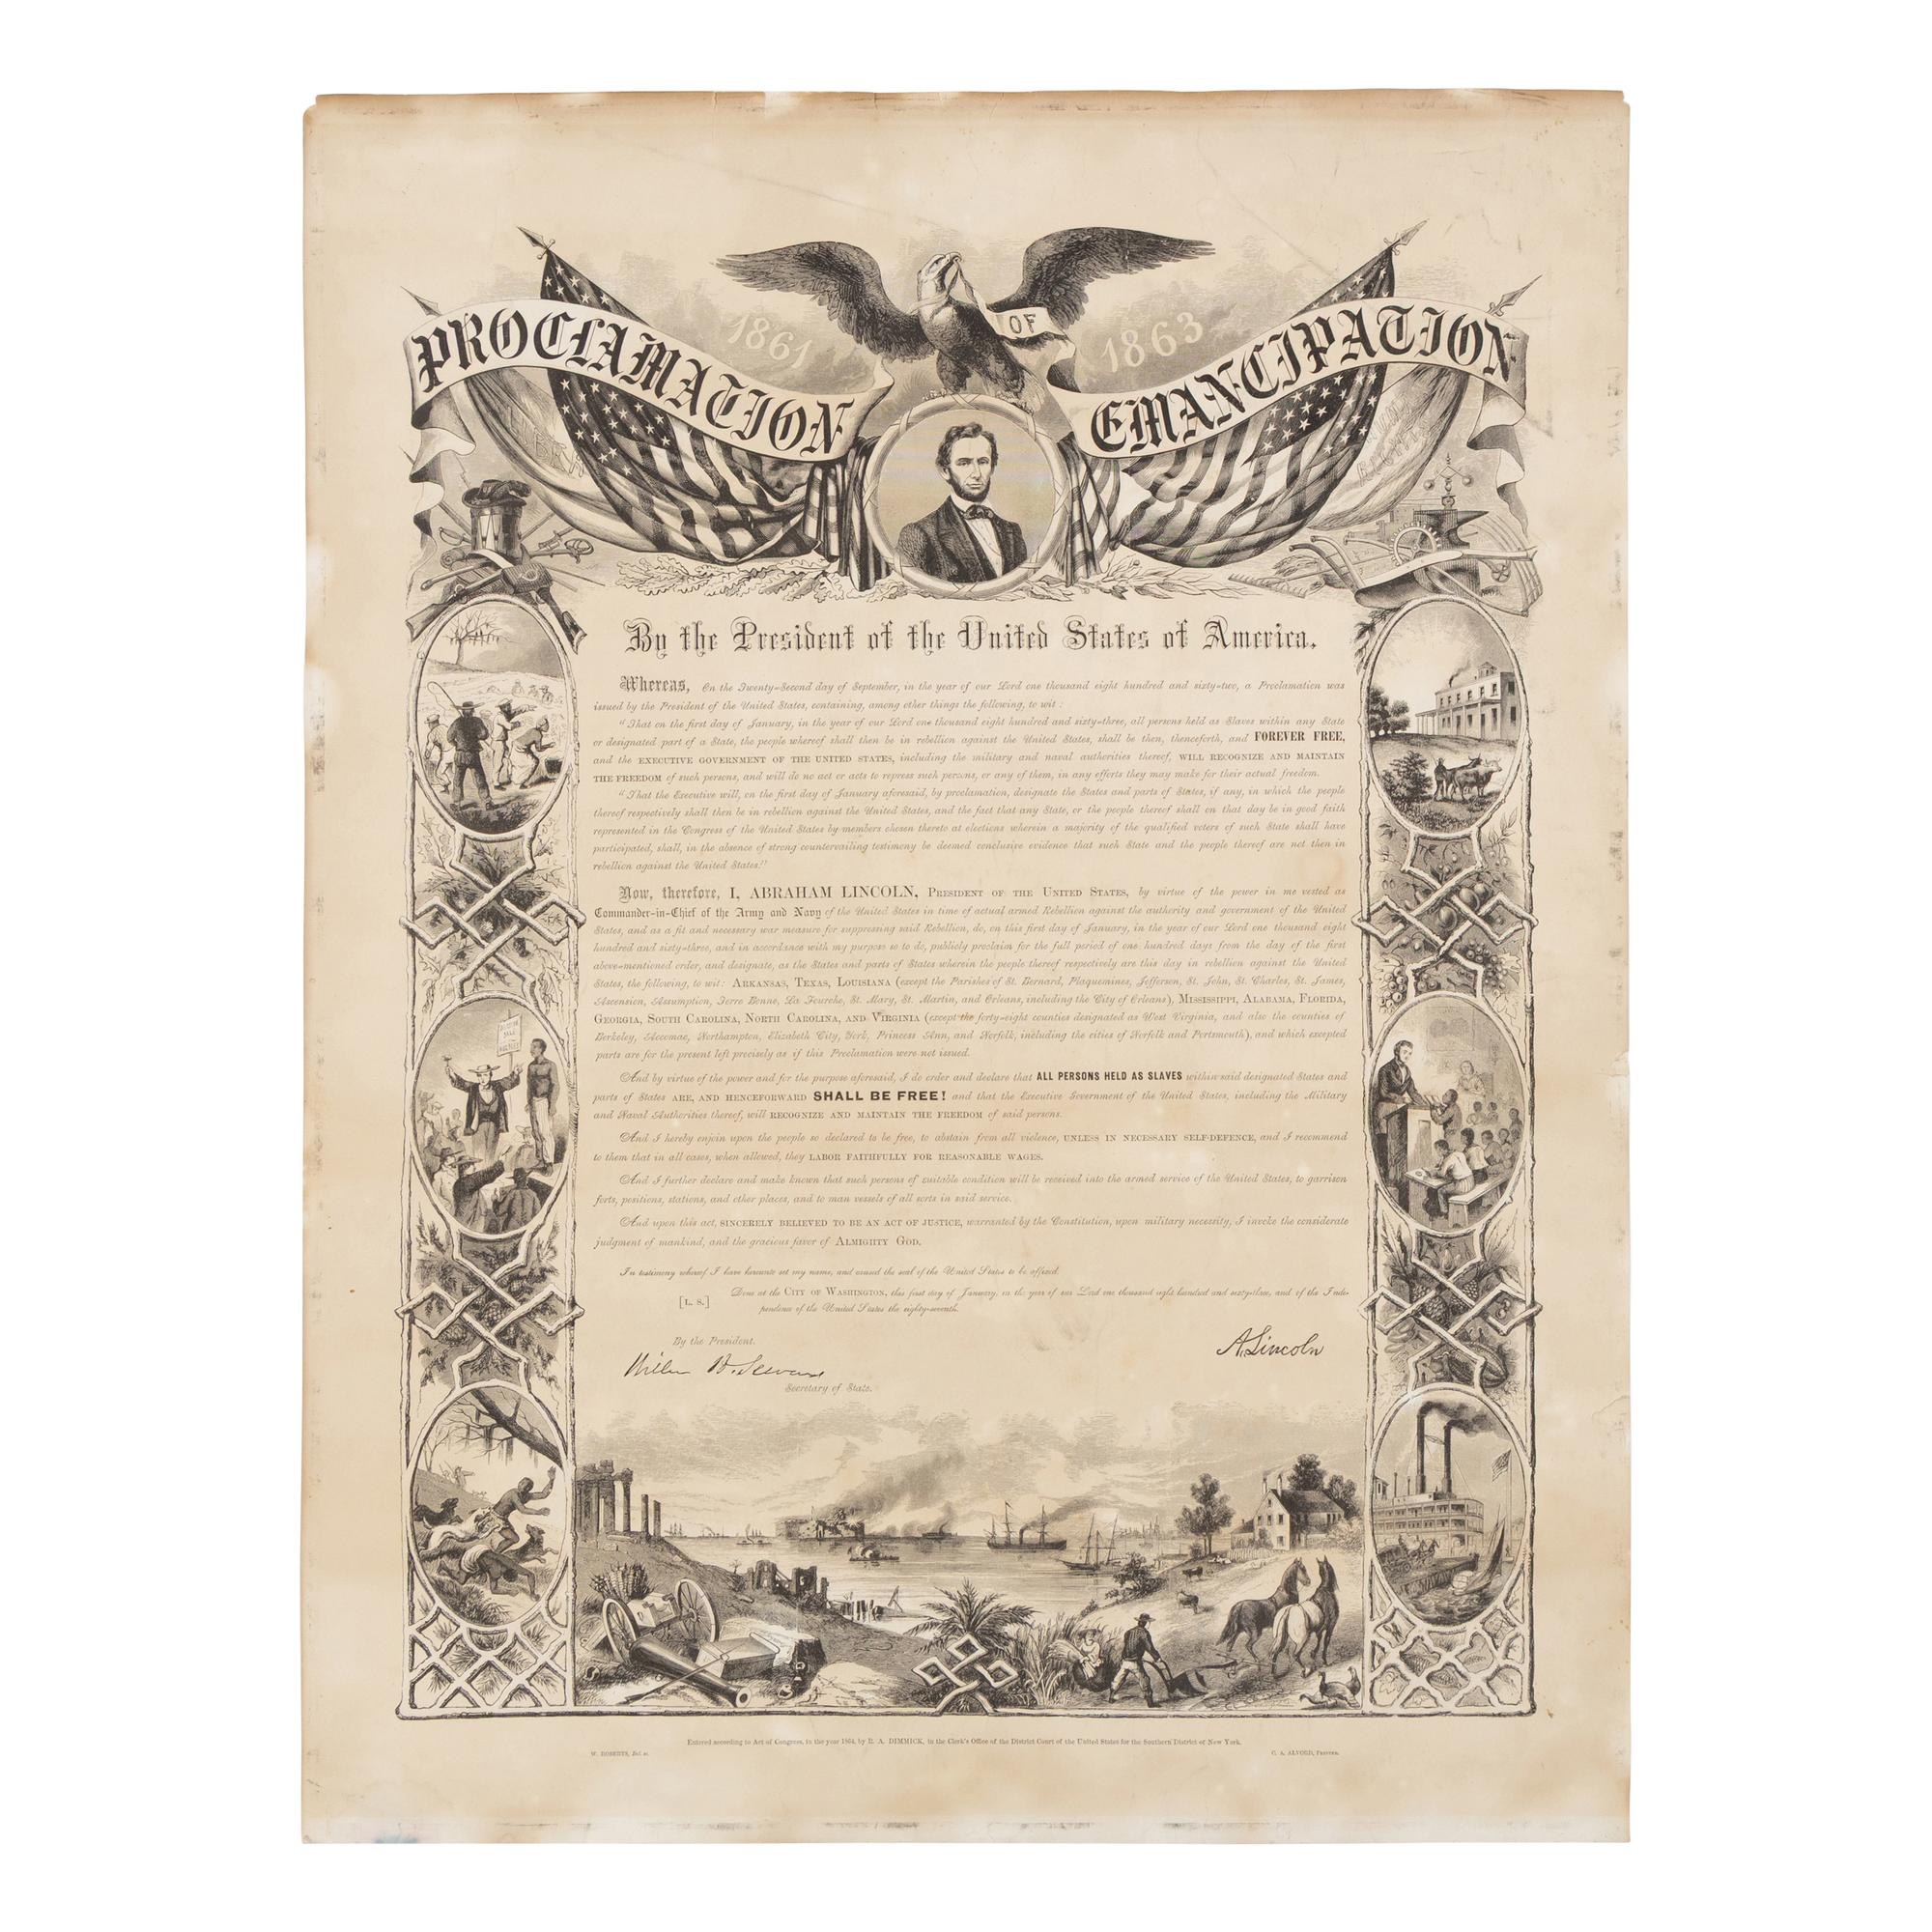 PROCLAMATION OF EMANCIPATION
1861 1863
By the President of the United States of America.
Whereas, On the Twenty-Second day of September, in the year of our Lord one thousand eight hundred and sixty-two, a Proclamation was
issued by the President of the United States, containing, among other things the following, to wit:
"That on the first day of January, in the year of our Lord one thousand eight hundred and sixty-three, all persons held as Slaves within any State
or designated part of a State, the people whereof shall then be in rebellion against the United States, shall be then, thenceforth, and FOREVER FREE,
and the EXECUTIVE GOVERNMENT OF THE UNITED STATES, including the military and naval authorities thereof, WILL RECOGNIZE AND MAINTAIN
THE FREEDOM of such persons, and will do no act or acts to repress such persons, or any of them, in any efforts they may make for their actual freedom.
"That the Executive will, on the first day of January aforesaid, by proclamation, designate the States and parts of States, if any, in which the people
thereof respectively shall then be in rebellion against the United States, and the fact that any State, or the people thereof shall on that day be in good faith
represented in the Congress of the United States by members chosen thereto at elections wherein a majority of the qualified voters of such State shall have
participated, shall, in the absence of strong countervailing testimony be deemed conclusive evidence that such State and the people thereof are not then in
rebellion against the United States."
Now, therefore, I, ABRAHAM LINCOLN, PRESIDENT OF THE UNITED STATES, by virtue of the power in me vested as
Commander-in-Chief of the Army and Navy of the United States in time of actual armed Rebellion against the authority and government of the United
States, and as a fit and necessary war measure for suppressing said Rebellion, do, on this first day of January, in the year of our Lord one thousand eight
hundred and sixty-three, and in accordance with my purpose so to do, publicly proclaim for the full period of one hundred days from the day of the first
above-mentioned order, and designate, as the States and parts of States wherein the people thereof respectively are this day in rebellion against the United
States, the following, to wit: ARKANSAS, TEXAS, LOUISIANA (except the Parishes of St. Bernard, Plaquemines, Jefferson, St. John, St. Charles, St. James,
Ascension, Assumption, Terre Bonne, La Fourche, St. Mary, St. Martin, and Orleans, including the City of Orleans), MISSISSIPPI, ALABAMA, FLORIDA,
GEORGIA, SOUTH CAROLINA, NORTH CAROLINA, AND VIRGINIA (except the forty-eight counties designated as West Virginia, and also the counties of
Berkeley, Accomac, Northampton, Elizabeth City, York, Princess Ann, and Norfolk, including the cities of Norfolk and Portsmouth), and which excepted
parts are for the present left precisely as if this Proclamation were not issued.
And by virtue of the power and for the purpose aforesaid, I do order and declare that ALL PERSONS HELD AS SLAVES within said designated States and
parts of States ARE, AND HENCEFORWARD SHALL BE FREE! and that the Executive Government of the United States, including the Military
and Naval Authorities thereof, will RECOGNIZE AND MAINTAIN THE FREEDOM of said persons.
And I hereby enjoin upon the people so declared to be free, to abstain from all violence, UNLESS IN NECESSARY SELF-DEFENCE, and I recommend
to them that in all cases, when allowed, they LABOR FAITHFULLY FOR REASONABLE WAGES.
And I further declare and make known that such persons of suitable condition will be received into the armed service of the United States, to garrison
forts, positions, stations, and other places, and to man vessels of all sorts in said service.
And upon this act, SINCERELY BELIEVED TO BE AN ACT OF JUSTICE, warranted by the Constitution, upon military necessity, I invoke the considerate
judgment of mankind, and the gracious favor of ALMIGHTY GOD.
In testimony whereof I have hereunto set my name, and caused the seal of the United States to be affixed.
[L. S.] Done at the CITY OF WASHINGTON, this first day of January, in the year of our Lord one thousand eight hundred and sixty-three, and of the Inde-
pendence of the United States the eighty-seventh.
By the President.
A. Lincoln
William H. Seward
Secretary of State.
Entered according to Act of Congress, in the year 1864, by B. A. DIMMICK, in the Clerk's Office of the District Court of the United States for the Southern District of New York.
W. ROBERTS, Del. sc.
C. A. ALVORD, PRINTER.